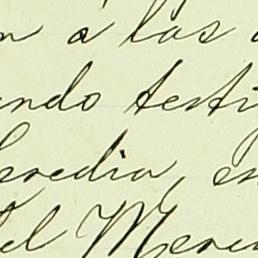 n á las
ando testi
eredia, en
del Mere